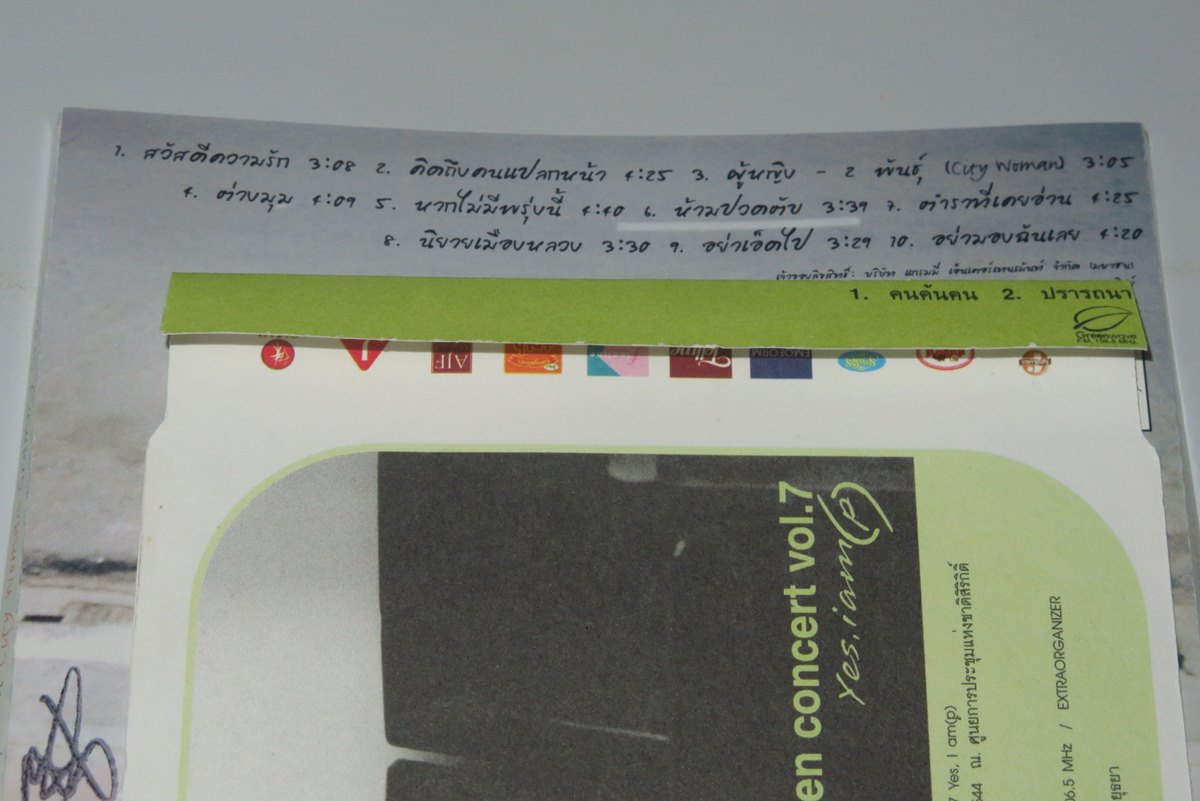 1. สวัสดีความรัก 3:08 2. คิดถึงคนแปลกหน้า 4:25 3. ผู้หญิง - 2 พันธุ์ (City Woman) 3:05
4. ต่างมุม 4:09 5. หากไม่มีพรุ่งนี้ 4:40 6. ห้ามปวดตับ 3:39 7. ตำราที่เคยอ่าน 4:25
8. นิยายเมืองหลวง 3:30 9. อย่าเอ็ดไป 3:29 10. อย่ามองฉันเลย 4:20
เจ้าของลิขสิทธิ์: บริษัท แกรมมี่ เอ็นเตอร์เทนเม้นท์ จำกัด (มหาชน)
1. คนค้นคน 2. ปรารถนา
Greenwave
F.M. 106.5 MHz
AJF
EMOFORM
en concert vol.7
yes, i am(p)
7 Yes, I am(p)
544 ณ. ศูนย์การประชุมแห่งชาติสิริกิติ์
6.5 MHz / EXTRAORGANIZER
ยุธยา